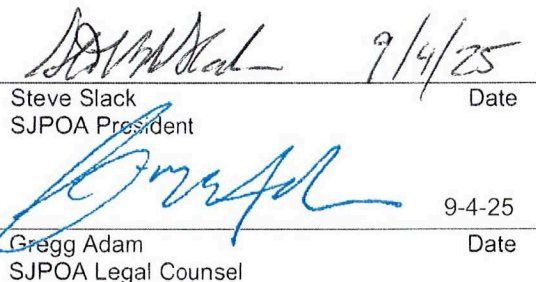 9/4/25
Steve Slack Date
SJPOA President
9-4-25
Gregg Adam Date
SJPOA Legal Counsel